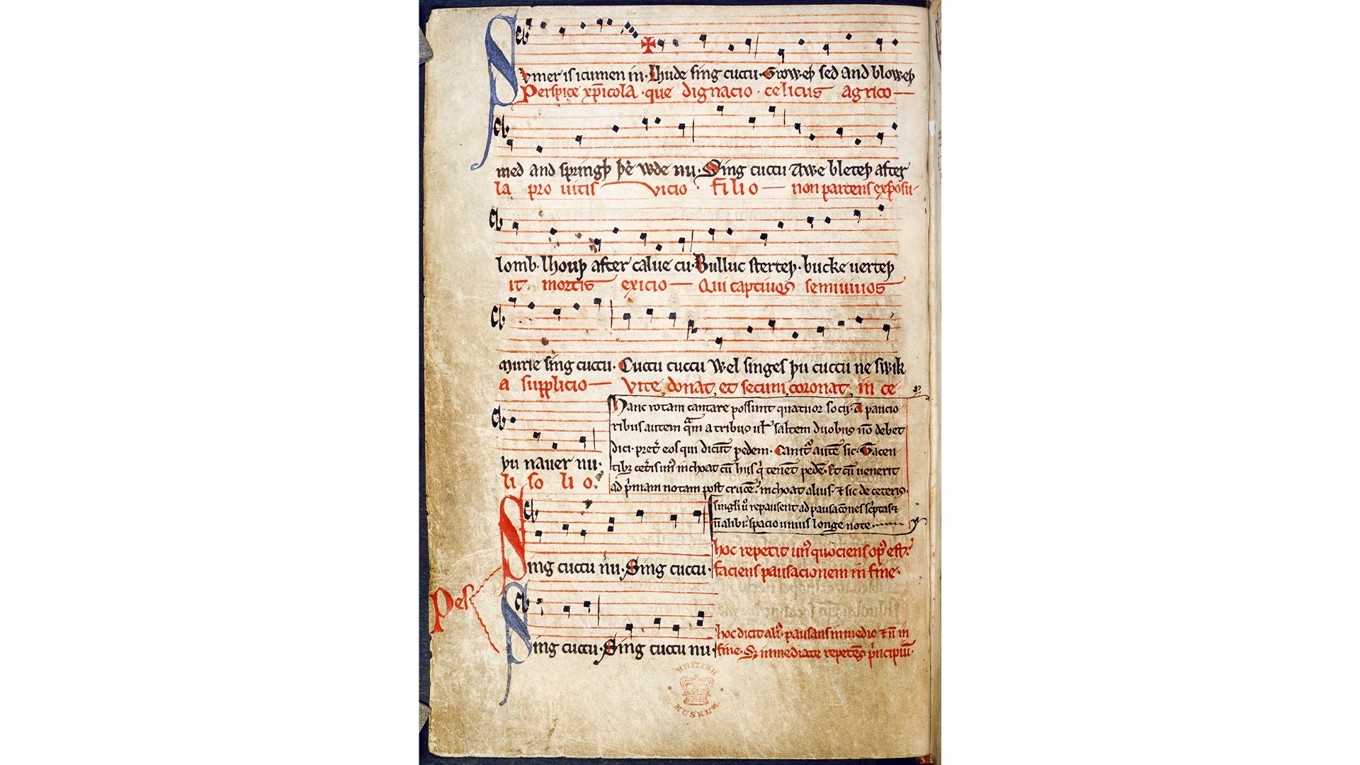 Sumer is icumen in. Lhude sing cuccu. Groweþ sed and bloweþ
Perspice xp̄icola que dignacio celicus agrico
med and springþ þe wde nu. Sing cuccu Awe bleteþ after
la pro uitis vicio filio non parcens exposu
lomb. lhouþ after calue cu. Bulluc sterteþ. bucke uerteþ
it mortis exicio Qui captiuos semiuiuos
murie sing cuccu. Cuccu cuccu Wel singes þu cuccu ne swik
a supplicio Vite donat et secum coronat in ce
þu nauer nu.
li so li o.
Hanc rotam cantare possunt quatuor socii. A paucio
ribus autem quam a tribus uel saltem duobus non debet
dici. preter eos qui dicunt pedem. Canitur autem sic. Tacen
tibus ceteris unus inchoat cum hiis qui tenent pedem. Et cum uenerit
ad primam notam post crucem. inchoat alius. et sic de ceteris.
singuli uero repausent ad pausaciones scriptas et
non alibi. spacio unius longe note.
Pes
Sing cuccu nu. Sing cuccu.
hoc repetit unus quociens opus est.
faciens pausacionem in fine.
Sing cuccu. Sing cuccu nu
hoc dicit alius. pausans in medio et non in
fine. Sed immediate repetens principium.
BRITISH
MUSEUM